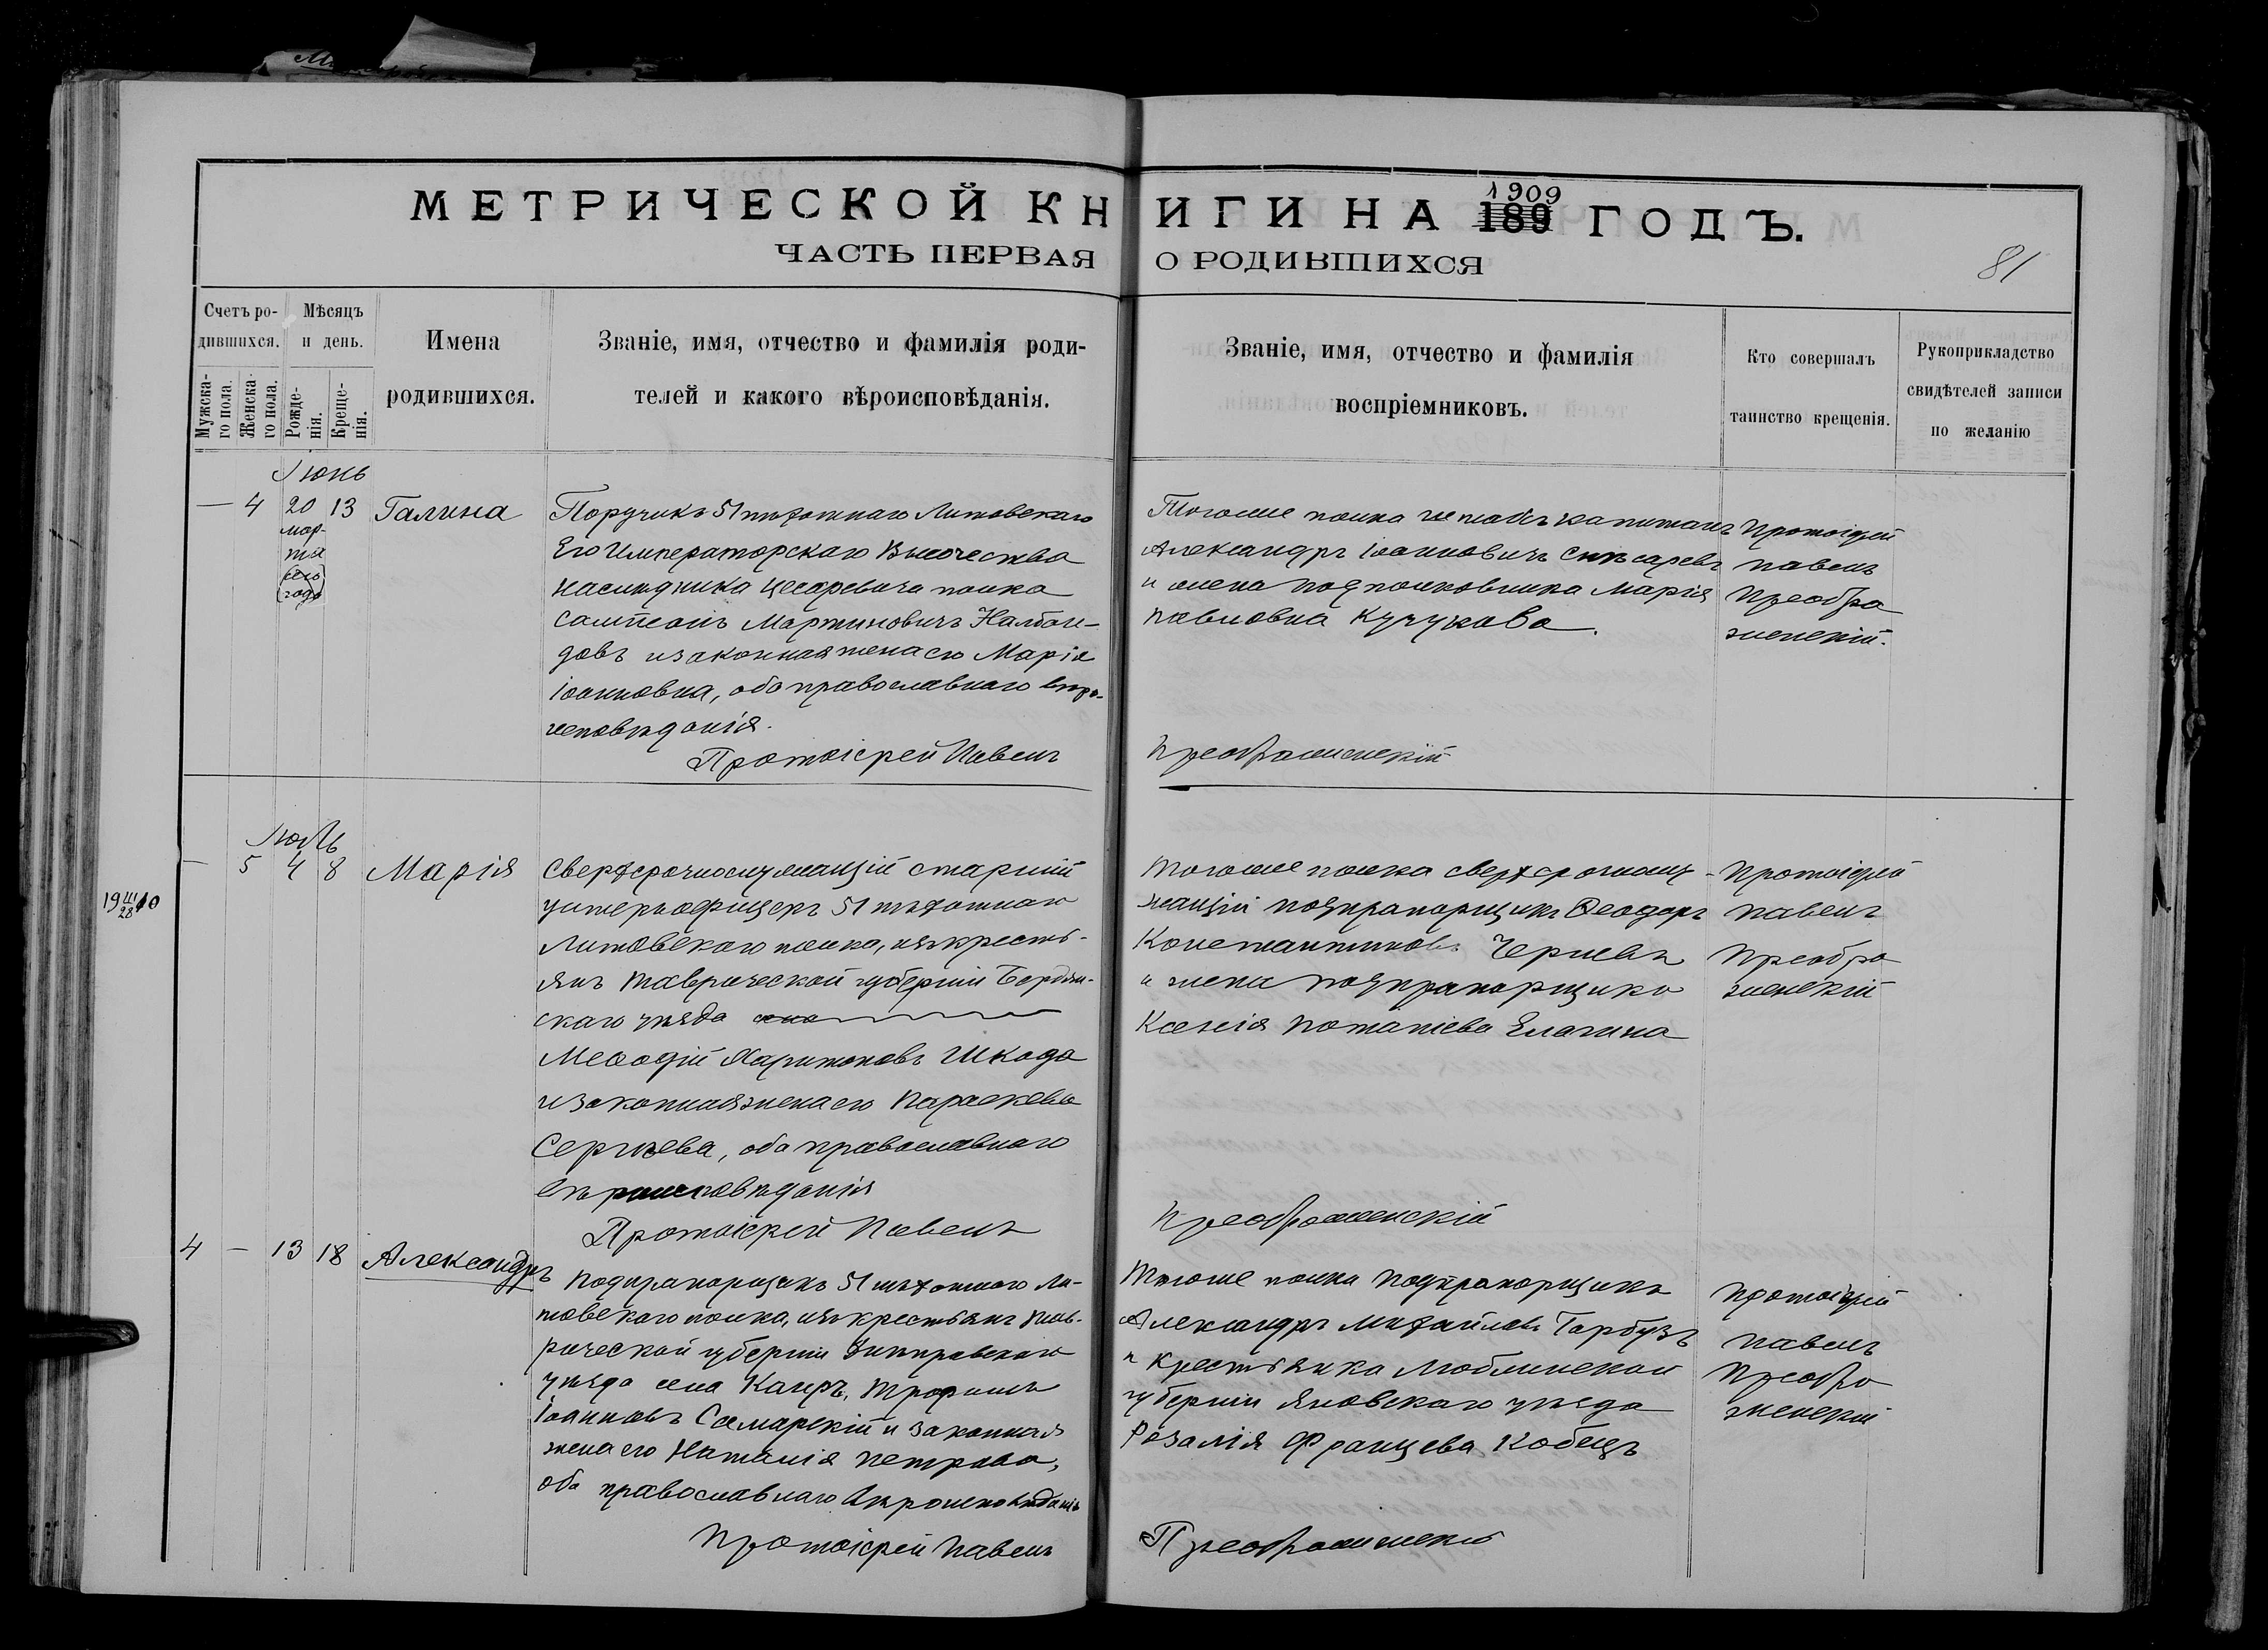 МЕТРИЧЕСКОЙ КНИГИ НА 1909 189 ГОДЪ.
ЧАСТЬ ПЕРВАЯ О РОДИВШИХСЯ
81
Счетъ родившихся.
Мужскаго пола.
Женскаго пола.
Мѣсяцъ и день.
Рожденія.
Крещенія.
Имена
родившихся.
Званіе, имя, отчество и фамилія роди-
телей и какого вѣроисповѣданія.
Званіе, имя, отчество и фамилія
воспріемниковъ.
Кто совершалъ
таинство крещенія.
Рукоприкладство
свидѣтелей записи
по желанію
Іюнь
— 4 20 13 Галина
мар-
та
(сего
года)
Поручикъ 51 пѣхотнаго Литовскаго
Его Императорскаго Высочества
Наслѣдника Цесаревича полка
Сампсонъ Мартиновичъ Налбан-
довъ и законная жена его Марія
Іоанновна, оба православнаго вѣро-
исповѣданія.
Протоіерей Павелъ Преображенскій
Того же полка штабсъ капитанъ
Александръ Іоанновичъ Снѣсаревъ
и жена подполковника Марія
Павловна Кучукова.
Протоіерей
Павелъ
Преобра
женскій.
Іюль
— 5 4 8 Марія
19 III/28 10
Сверхсрочнослужащій старшій
унтеръ офицеръ 51 пѣхотнаго
Литовскаго полка, изъ кресть-
янъ Таврической губерніи Бердян-
скаго уѣзда
Меѳодій Харитоновъ Шкода
и законная жена его Параскева
Сергѣева, оба православнаго
вѣроисповѣданія
Протоіерей Павелъ Преображенскій
Того же полка сверхсрочнослу-
жащій подпрапорщикъ Ѳеодоръ
Константиновъ
и жена подпрапорщика
Ксенія Потапіева Елагина
Протоіерей
Павелъ
Преобра
женскій
4 — 13 18 Александръ
Подпрапорщикъ 51 пѣхотнаго Ли-
товскаго полка, изъ крестьянъ Тав-
рической губерніи Днѣпровскаго
уѣзда села Каиръ, Трофимъ
Іоанновъ Самарскій и законная
жена его Наталія Петрова,
оба православнаго вѣроисповѣданія
Протоіерей Павелъ Преображенскій
Того же полка подпрапорщикъ
Александръ Михайловъ Гарбузъ
и крестьянка Люблинской
губерніи Яновскаго уѣзда
Розалія Францева Кобецъ
Протоіерей
Павелъ
Преобра
женскій